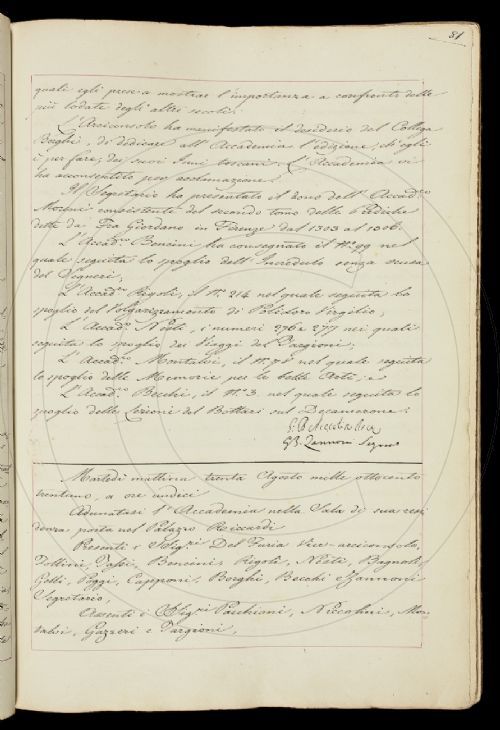 81
quali egli prese a mostrar l'importanza a confronto delle
più lodate degli altri secoli.
L'Arciconsolo ha manifestato il desiderio del Collega
Borghi, di dedicare all'Accademia l'edizione, ch'egli
è per fare, dei suoi Inni toscani. L'Accademia vi
ha acconsentito per acclamazione.
Il Segretario ha presentato il dono dell'Accad.co
Moreni consistente del secondo tomo delle Prediche
dette da Fra Giordano in Firenze dal 1303 al 1306.
L'Accad.co Bencini ha consegnato il N.o 99 nel
quale seguita lo spoglio dell'Incredulo senza scusa
del Segneri;
L'Accad.co Rigoli, il N. 214 nel quale seguita lo
spoglio del Volgarizzamento di Polidoro Virgilio;
L'Accad.co Nesti, i numeri 276 e 277 nei quali
seguita lo spoglio dei Viaggi del Targioni;
L'Accad.co Montalvi, il N. 78 nel quale seguita
lo spoglio delle Memorie per le belle Arti; e
L'Accad.co Becchi, il N.o 3. nel quale seguita lo
spoglio delle Lezioni del Bottari sul Decamerone.
G.B. Zannoni Segr.o
Martedì mattina trenta Agosto mille ottocento
trentuno, a ore undici
Adunatasi l'Accademia nella Sala di sua resi
denza posta nel Palazzo Riccardi
Presenti i Sig.ri Del Furia Vice-arciconsolo,
Follini, Sassi, Bencini, Rigoli, Nesti, Bagnoli,
Gelli, Poggi, Capponi, Borghi, Becchi e Zannoni
Segretario,
Assenti i Sig.ri Paschioni, Niccolini, Mon
talvi, Gazzeri e Targioni,